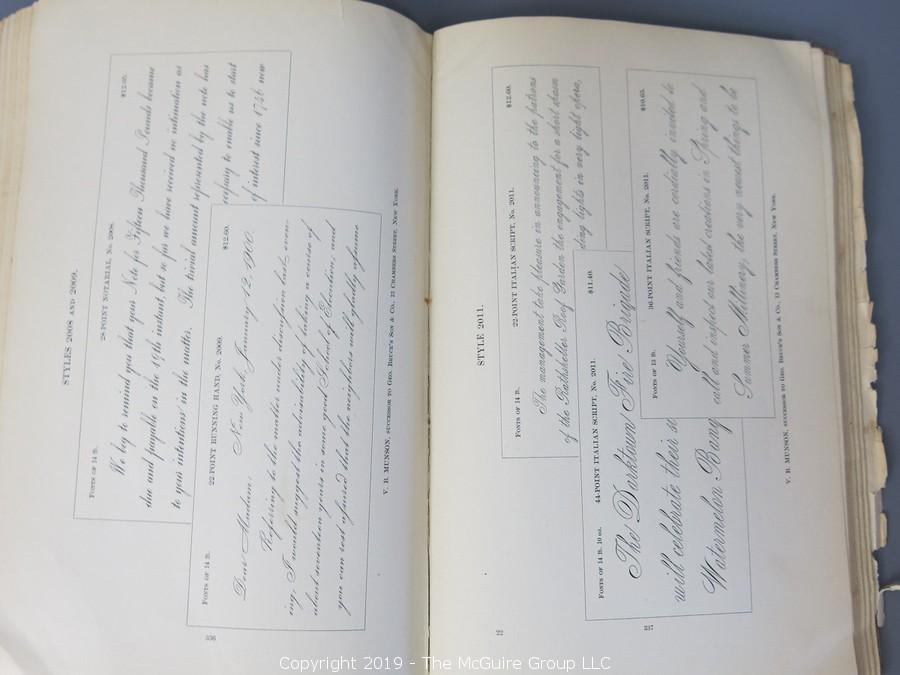 STYLES 2008 AND 2009.
28-POINT NOTARIAL, No. 2008.
FONTS OF 14 lb.
$12.60.
We beg to remind you that your Note for Fifteen Thousand Pounds became
due and payable on the 19th instant, but so far we have received no intimation as
to your intentions in the matter. The trivial amount represented by the note has
necessary to enable us to start
of interest since 1746 now
22-POINT RUNNING HAND, No. 2009.
FONTS OF 14 lb.
$12.60.
New York, January 12, 1900.
Dear Madam:
Referring to the matter under discussion last even-
ing, I would suggest the advisability of taking a course of
about seventeen years in some good School of Elocution; and
you can rest assured that the neighbors will gladly assume
V. B. MUNSON, SUCCESSOR TO GEO. BRUCE'S SON & CO., 13 CHAMBERS STREET, NEW YORK.
336
STYLE 2011.
22-POINT ITALIAN SCRIPT, No. 2011.
FONTS OF 14 lb.
$12.60.
The management take pleasure in announcing to the patrons
of the Rathskeller Roof Garden the engagement for a short season
ding lights in very light opera,
44-POINT ITALIAN SCRIPT, No. 2011.
FONTS OF 14 lb. 10 oz.
$11.40.
The Darktown Fire Brigade
will celebrate their se
Watermelon Banq
36-POINT ITALIAN SCRIPT, No. 2011.
FONTS OF 13 lb.
$10.65.
Yourself and friends are cordially invited to
call and inspect our latest creations in Spring and
Summer Millinery, the very newest things to be
V. B. MUNSON, SUCCESSOR TO GEO. BRUCE'S SON & CO., 13 CHAMBERS STREET, NEW YORK.
22
337
Copyright 2019 - The McGuire Group LLC